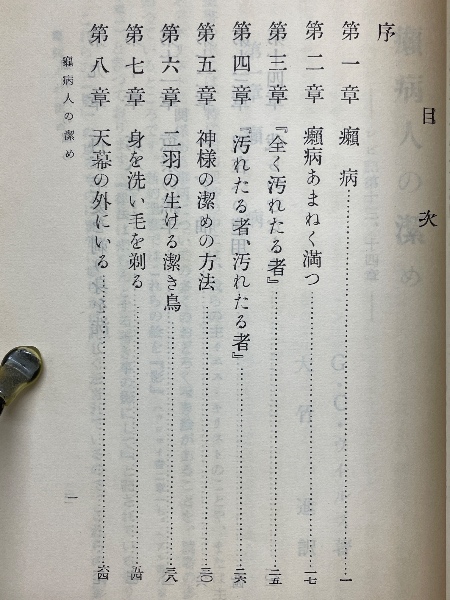 目次
序
第一章 癩病……一
第二章 癩病あまねく満つ……一七
第三章 『全く汚れたる者』……二五
第四章 『汚れたる者、汚れたる者』……二六
第五章 神様の潔めの方法……三〇
第六章 二羽の生ける潔き鳥……三八
第七章 身を洗い毛を剃る……五四
第八章 天幕の外にいる……六四
癩病人の潔め
一